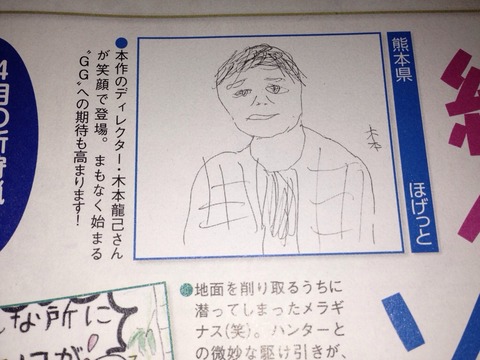 熊本県
ほげっと
木本
●本作のディレクター・木本龍己さん
が笑顔で登場。まもなく始まる
“GG”への期待も高まります！
●地面を削り取るうちに
潜ってしまったメラギ
ナス(笑)。ハンターと
の微妙な駆け引きが、
な所に
4月の